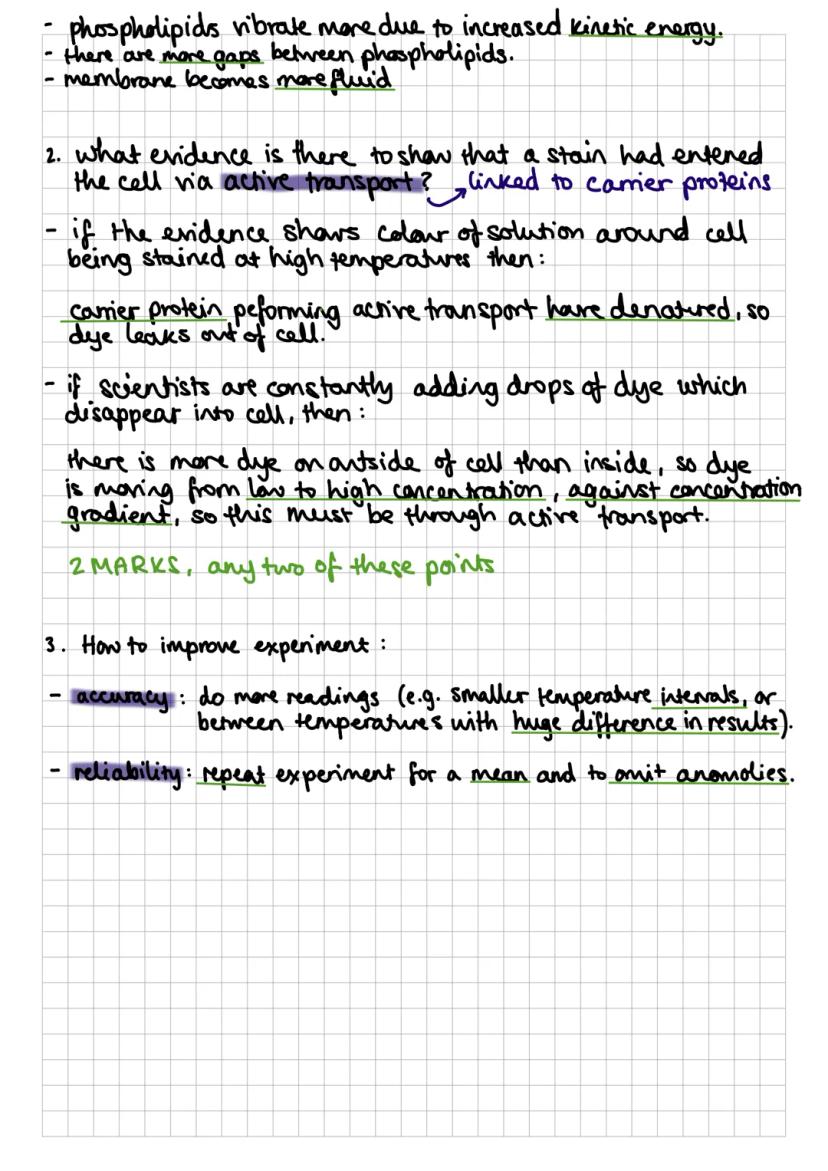 - phospholipids vibrate more due to increased kinetic energy.
- there are more gaps between phospholipids.
- membrane becomes more fluid
2. what evidence is there to show that a stain had entered
the cell via active transport? linked to carrier proteins
- if the evidence shows colour of solution around cell
being stained at high temperatures then:
carrier protein peforming active transport have denatured, so
dye leaks out of cell.
- if scientists are constantly adding drops of dye which
disappear into cell, then:
there is more dye on outside of cell than inside, so dye
is moving from low to high concentration, against concentration
gradient, so this must be through active transport.
2 MARKS, any two of these points
3. How to improve experiment:
- accuracy: do more readings (e.g. smaller temperature intervals, or
between temperatures with huge difference in results).
- reliability: repeat experiment for a mean and to omit anomolies.